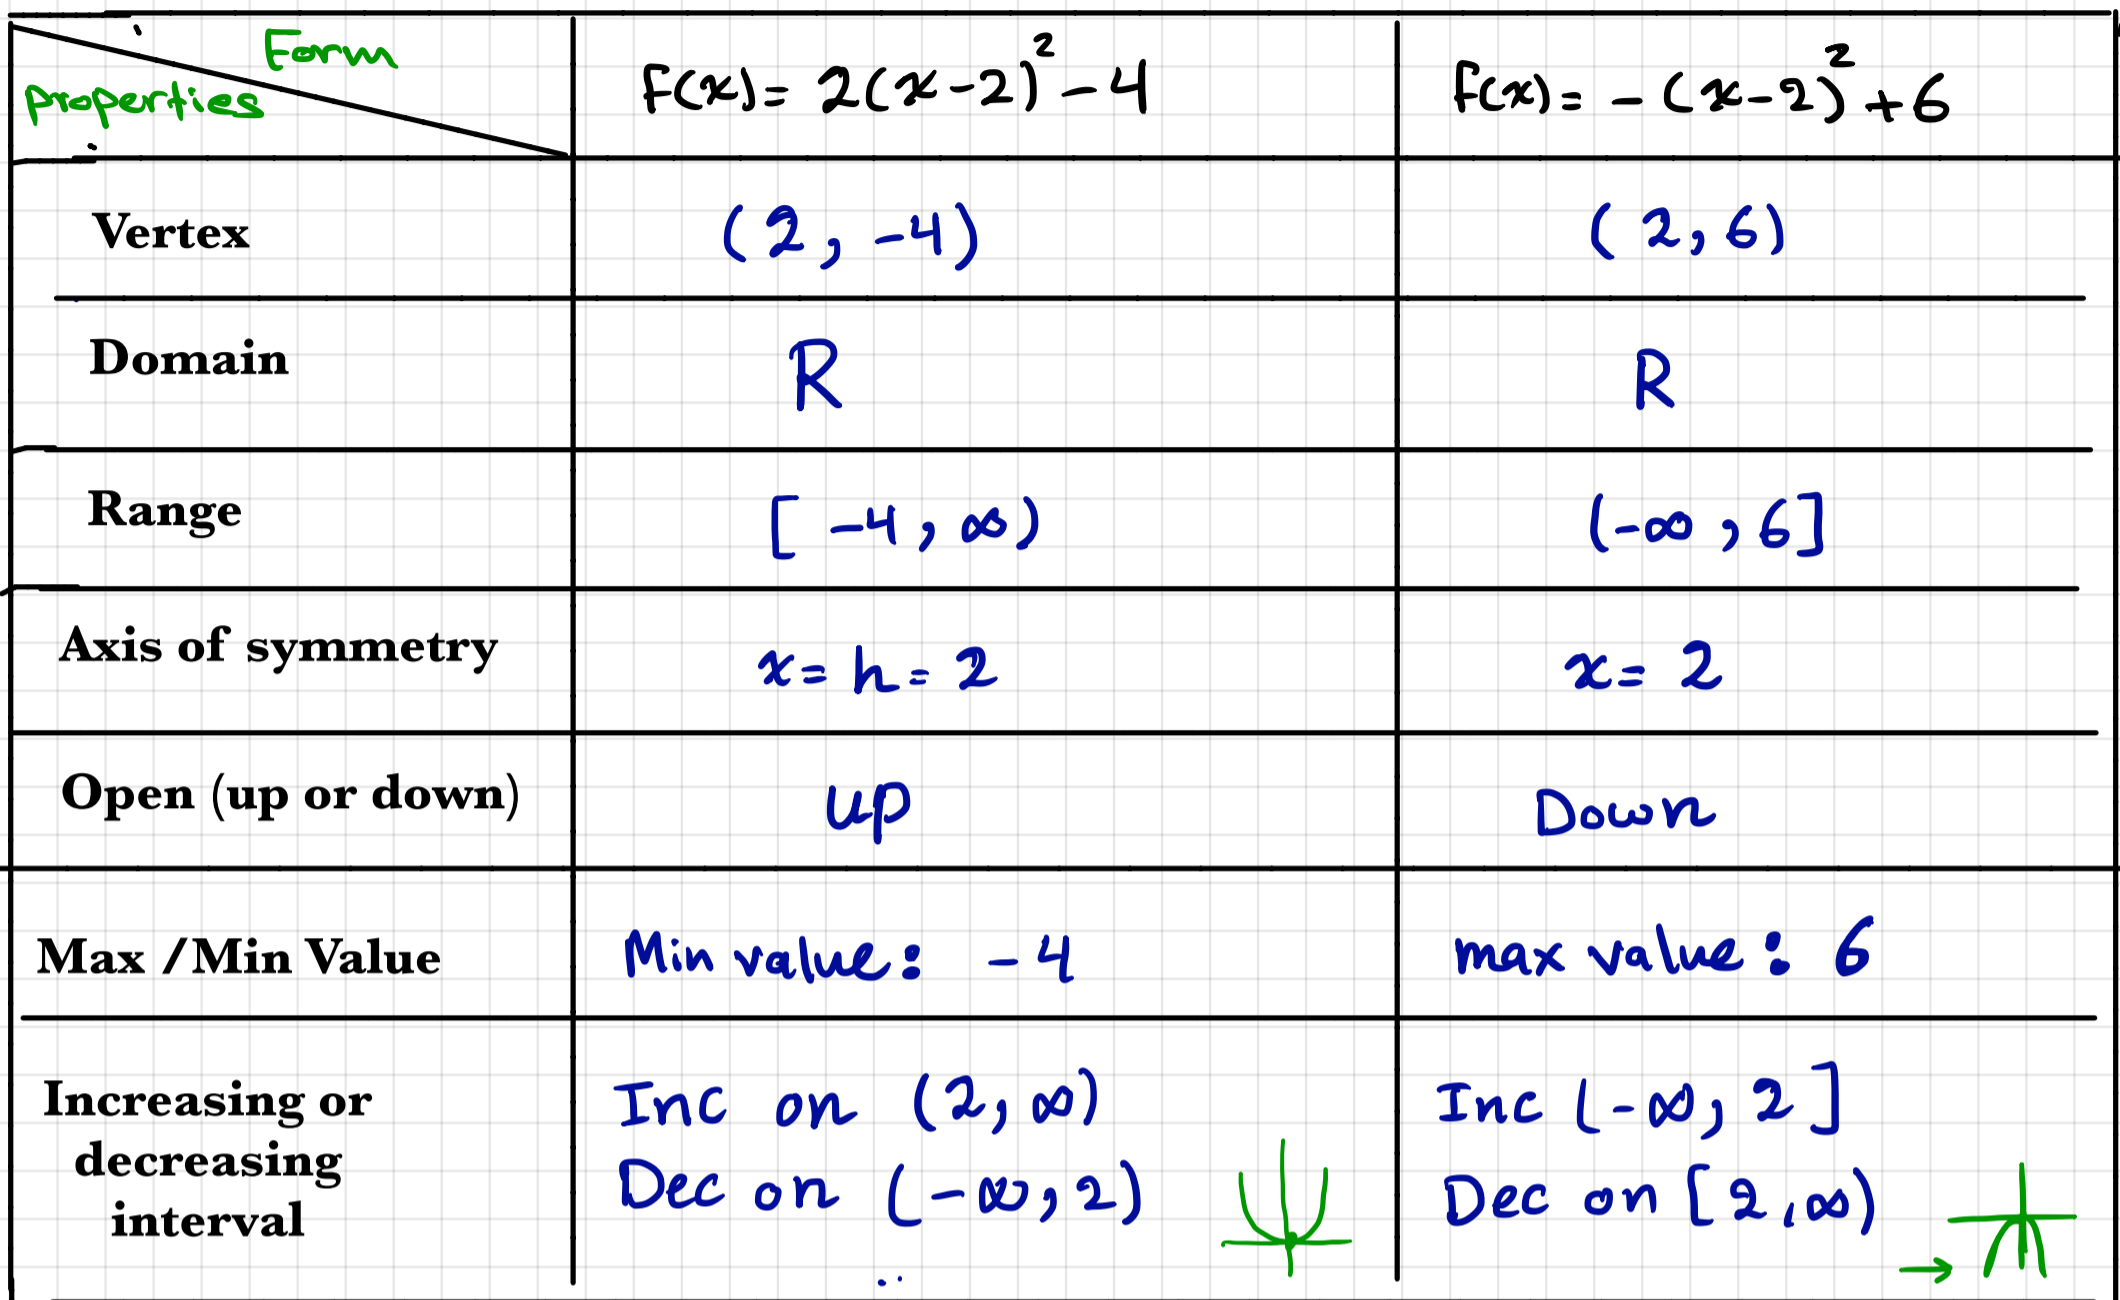 Form
properties
F(x)= 2(x-2)² -4
F(x)= -(x-2)² +6
Vertex
(2, -4)
(2,6)
Domain
R
R
Range
[-4, ∞)
(-∞, 6]
Axis of symmetry
x= h= 2
x= 2
Open (up or down)
up
Down
Max /Min Value
Min value: -4
max value: 6
Increasing or
decreasing
interval
Inc on (2, ∞)
Dec on (-∞, 2)
Inc (-∞, 2]
Dec on [2, ∞)